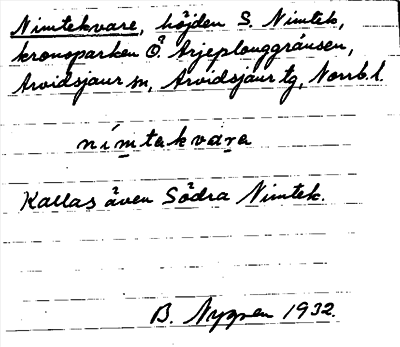 Nimtekvare, höjden S. Nimtek,
kronoparken Ö. Arjeplouggränsen,
Arvidsjaur sn, Arvidsjaur tg, Norrb. l.
nímtekvarɐ
Kallas även Södra Nimtek.
B. Nygren 1932.